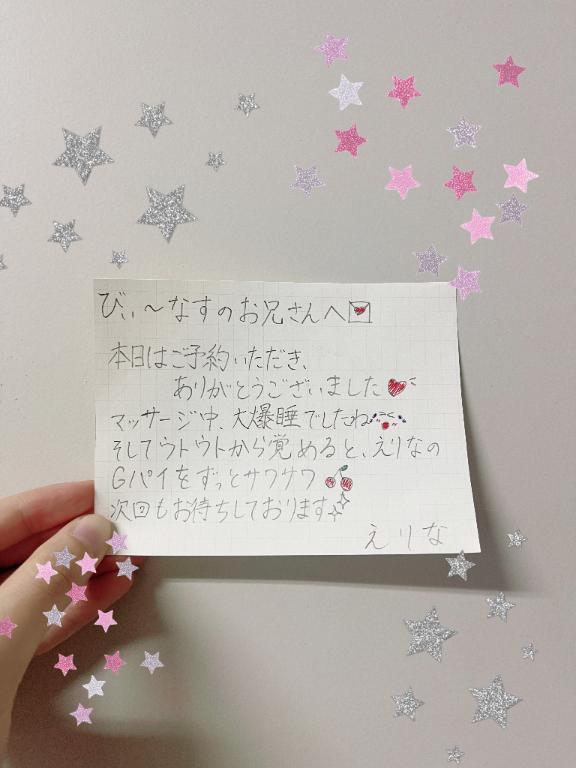 びぃ〜なすのお兄さんへ
本日はご予約いただき、
ありがとうございました
マッサージ中、大爆睡でしたね
そしてウトウトから覚めると、えりなの
Gパイをずっとサワサワ
次回もお待ちしております
えりな